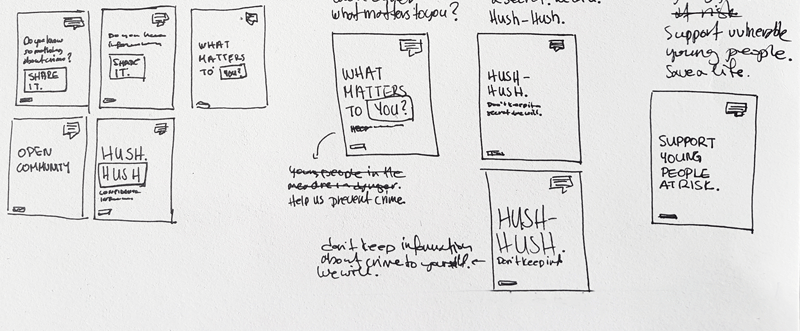 Do you know
something
about crime?
SHARE
IT.
Do you have
information
SHARE
IT.
WHAT
MATTERS
TO YOU?
OPEN
COMMUNITY
HUSH.
HUSH
what matters to you?
WHAT
MATTERS
TO YOU?
Young people in the
Help us prevent crime.
Hush-Hush.
HUSH-
HUSH.
Don't keep it a
secret. We will.
HUSH-
HUSH.
Don't keep inf
don't keep information
about crime to yourself.
We will.
at risk
Support vulnerable
young people.
Save a life.
SUPPORT
YOUNG
PEOPLE
AT RISK.